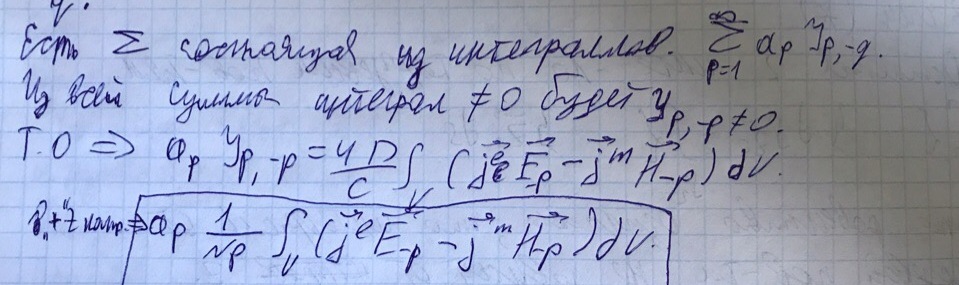 Есть Σ состоящая из интеграллов. ∞ Σ p=1 ap Jp,-q.
Из всей суммы интеграл ≠ 0 будет Jp,-p ≠ 0.
Т.О ⇒ ap Jp,-p = 4П/c ∫v (j^e E-p - j^m H-p) dV.
В "+" z напр. ⇒ ap 1/Np ∫v (j^e E-p - j^m H-p) dV.